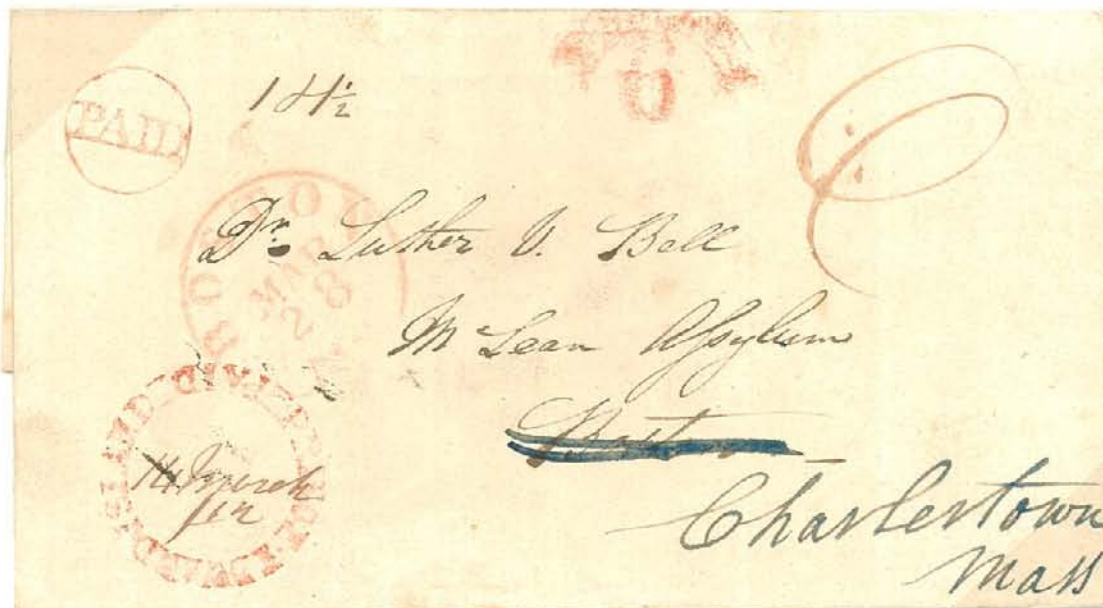 PAID
18½
6
BOSTON
MAR
28
Dr. Luther V. Bell
McLean Asylum
Charlestown
Mass
14 March